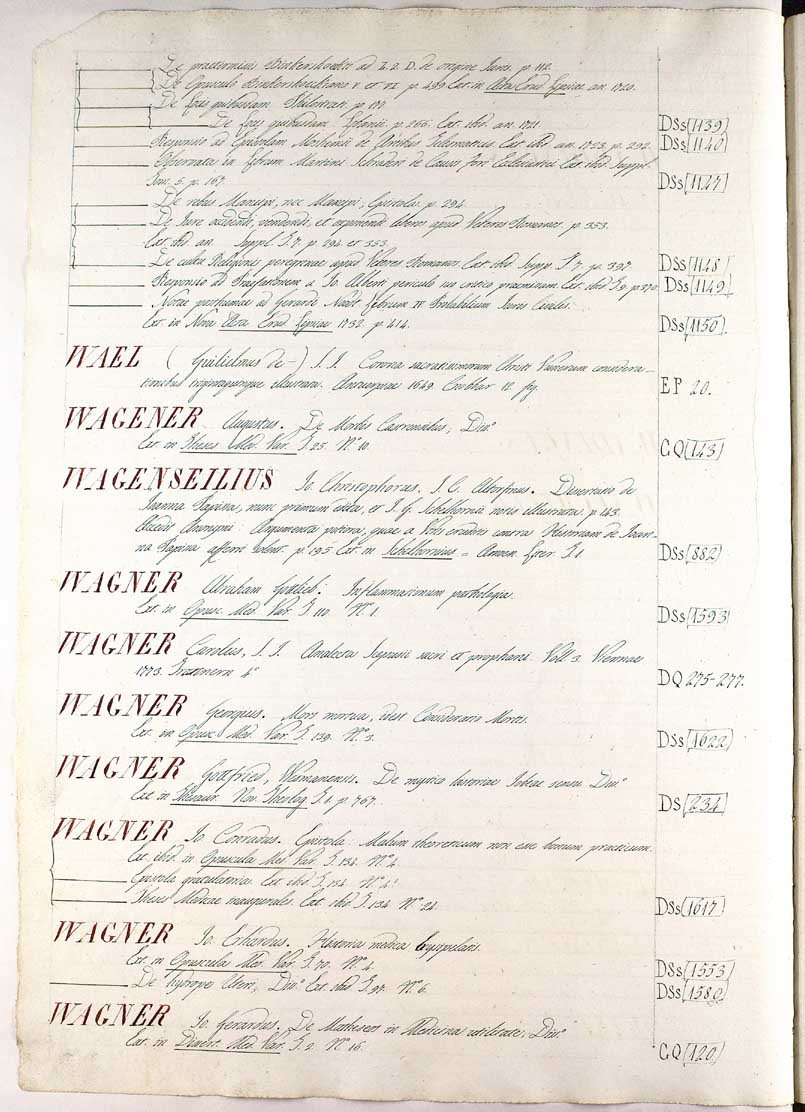 De praetermissis Binkershoekio ad L. 2. D. de origine Juris. p. 112.
De Opusculo Binkershoekiano V. et VI. p. 499. Ext. in Actis Erud. Lipsiae an. 1720.
De Locis quibusdam p. 117.
De Locis quibusdam p. 266. Ext. ibid. an. 1721. DSs [1139]
Responsio ad Epistolam de Artibus Ext. ibid. an. 1723. p. 292. DSs [1140]
Observata in Librum Martini Schraderi de Causis Fori Ecclesiastici Ext. ibid. Suppl.
Tom. 5. p. 167. DSs [1147]
De rebus Mancipi, nec Mancipi, Epistola. p. 294.
De Jure occidendi, vendendi, et exponendi liberos apud Veteres Romanos. p. 353.
Ext. ibid. an. Suppl. T. 7. p. 294. et 353.
De cultu Religionis peregrinae apud Veteres Romanos. Ext. ibid. Supp. T. 7. p. 397. DSs [1148]
Responsio ad Praefationem a Jo. Alberti periculo suo critico praemissam. Ext. ibid. T. 9. p. 370. DSs [1149]
Notae posthumae ad Gerardi Noodt Librum II. Probabilium Juris Civilis.
Ext. in Novis Actis Erud. Lipsiae 1732. p. 414. DSs [1150]
WAEL (Guilielmus de -) S. I. Corona sacratissimorum Christi Vulnerum considera-
tionibus trigintaquinque illustrata. Antuerpiae 1649. Cnobbar 12. fig. EP 20.
WAGENER Augustus. De Morbis Castrensibus, Diss.o
Ext. in Theses Med. Var. T. 25. N.o 10. CQ [143]
WAGENSEILIUS Jo. Christophorus, I. C. Altorfinus. Dissertatio de
Joanna Papissa, nunc primum edita, et I. G. Schelhornii notis illustrata. p. 143.
Accedit Anonymi: Argumenta potiora, quae a Viris eruditis contra Historiam de Joan-
na Papissa afferri solent. p. 195. Ext. in Schelhornius = Amoen. Liter. T. 1. DSs [882]
WAGNER Abraham Gottlieb. Inflammationum pathologia.
Ext. in Opusc. Med. Var. T. 110. N.o 1. DSs [1593]
WAGNER Carolus, S. I. Analecta Scepusii sacri et prophani. Voll. 3. Viennae
1773. Trattnern 4.o DQ 275-277.
WAGNER Georgius. Mors mortua, idest Consideratio Mortis.
Ext. in Opusc. Med. Var. T. 139. N.o 3. DSs [1622]
WAGNER Gottfried, Weismanensis. De mystico historiae Jobeae sensu Diss.o
Ext. in Thesaur. Nov. Theolog. T. 1. p. 767. DS [234]
WAGNER Jo. Conradus. Epistola: Malum theoreticum non esse bonum practicum.
Ext. ibid. in Opuscula Med. Var. T. 134. N.o 4.
Epistola gratulatoria. Ext. ibid. T. 134. N.o 4.
Theses Medicae inaugurales. Ext. ibid. T. 134. N.o 24. DSs [1617]
WAGNER Jo. Erhardus. Historia medica Erysipelatis.
Ext. in Opuscula Med. Var. T. 70. N.o 4. DSs [1553]
De hydrope Uteri, Diss.o Ext. ibid. T. 97. N.o 6. DSs [1580]
WAGNER Jo. Gerardus. De Matheseos in Medicina utilitate, Diss.o
Ext. in Dissert. Med. Var. T. 2. N.o 16. CQ [120]